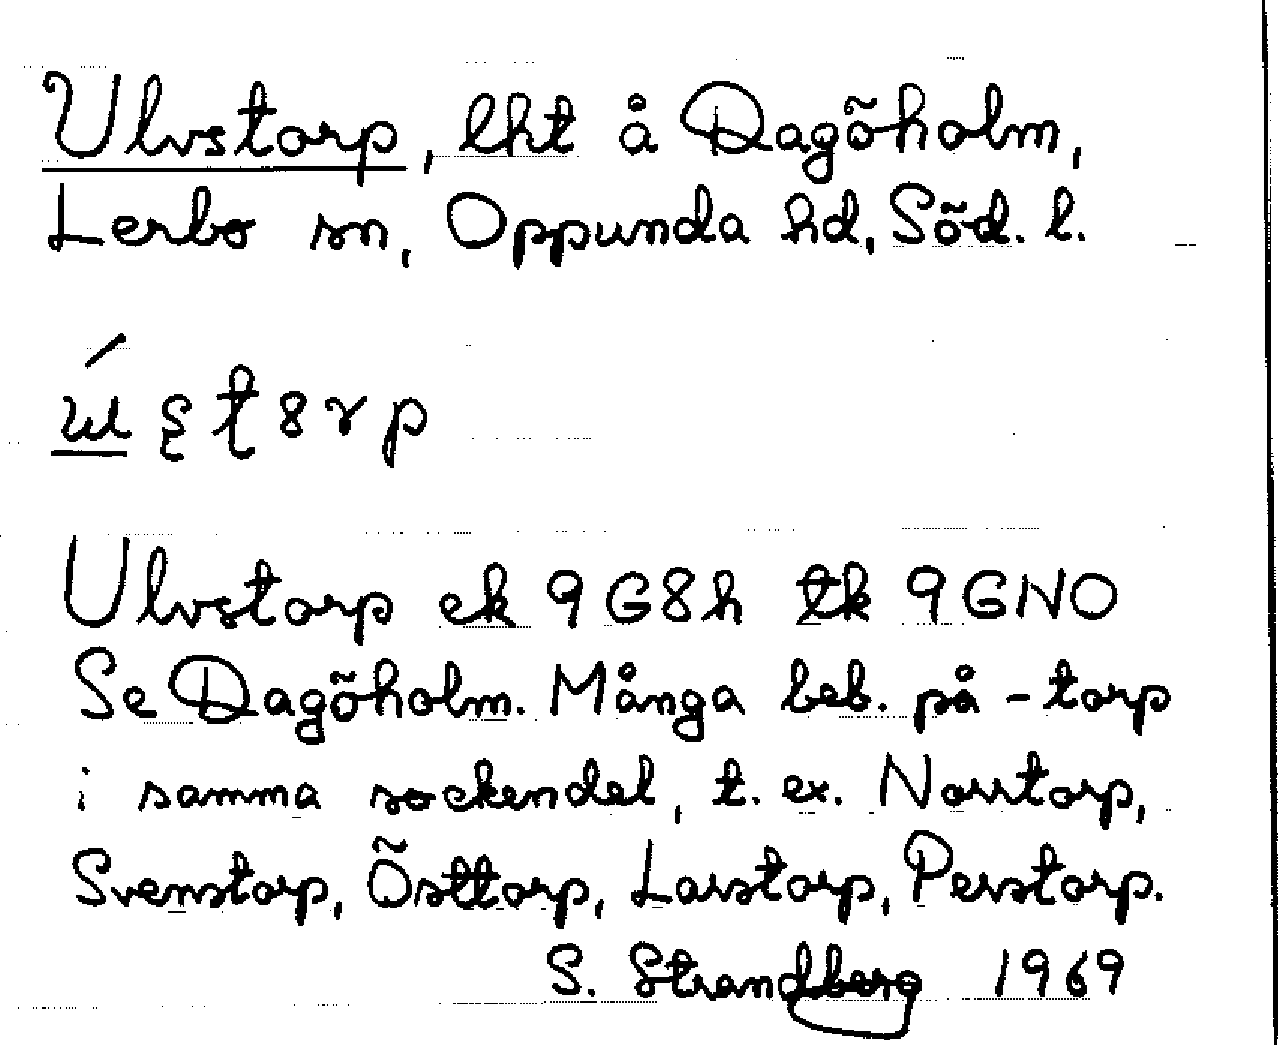 Ulvstorp, lht å Dagöholm,
Lerbo sn, Oppunda hd, Söd. l.
Ulvstorp ek 9G8h tk 9GNO
Se Dagöholm. Många beb. på -torp
i samma sockendel, t. ex. Norrtorp,
Svenstorp, Östtorp, Larstorp, Perstorp.
S. Strandberg 1969